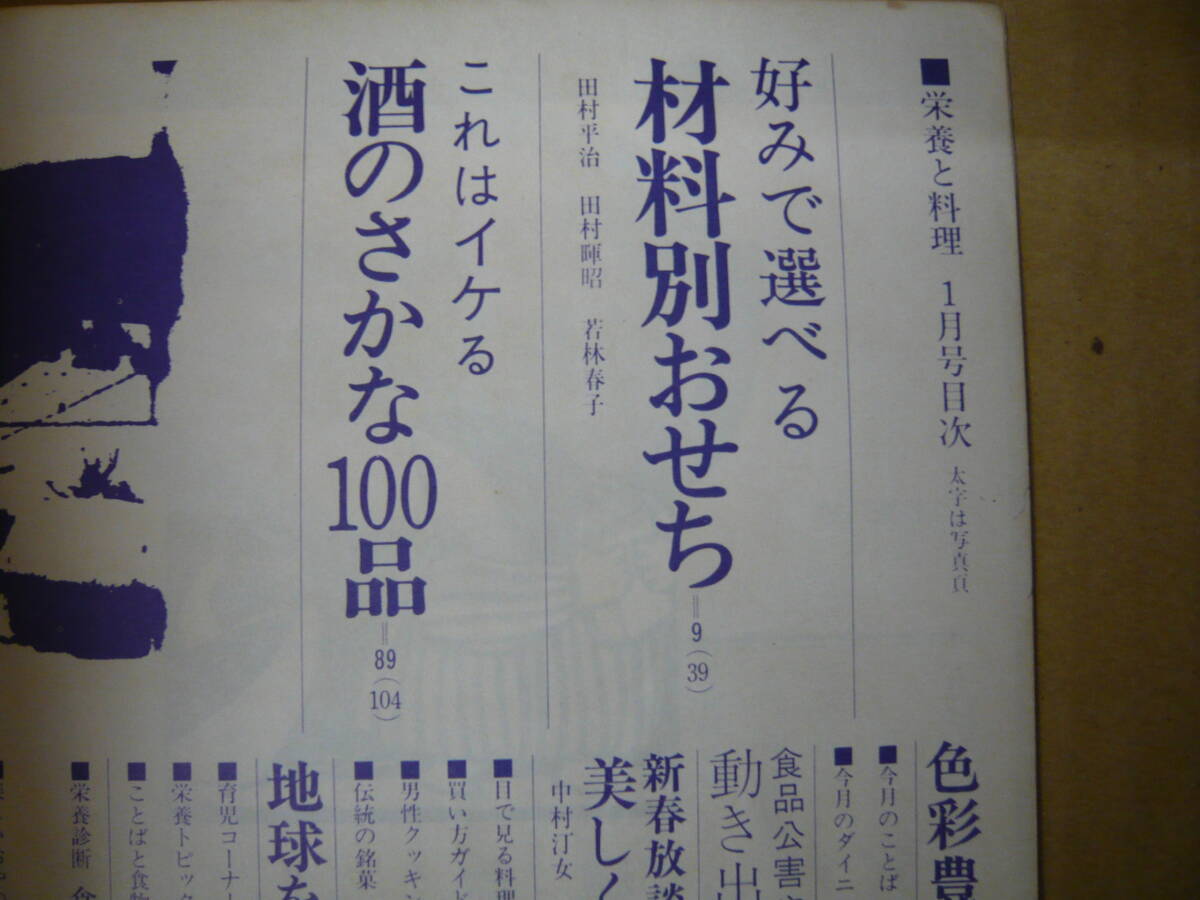 ■栄養と料理 1月号目次 太字は写真頁
好みで選べる
材料別おせち=9(39)
田村平治 田村暉昭 若林春子
これはイケる
酒のさかな100品=89(104)
色彩豊
■今月のことば
■今月のダイニ
食品公害
動き出
新春放談
美しく
中村汀女
■目で見る料理
■買い方ガイド
■男性クッキン
■伝統の銘菓
地球を
■育児コーナー
■栄養トピック
■ことばと食物
■栄養診断 食